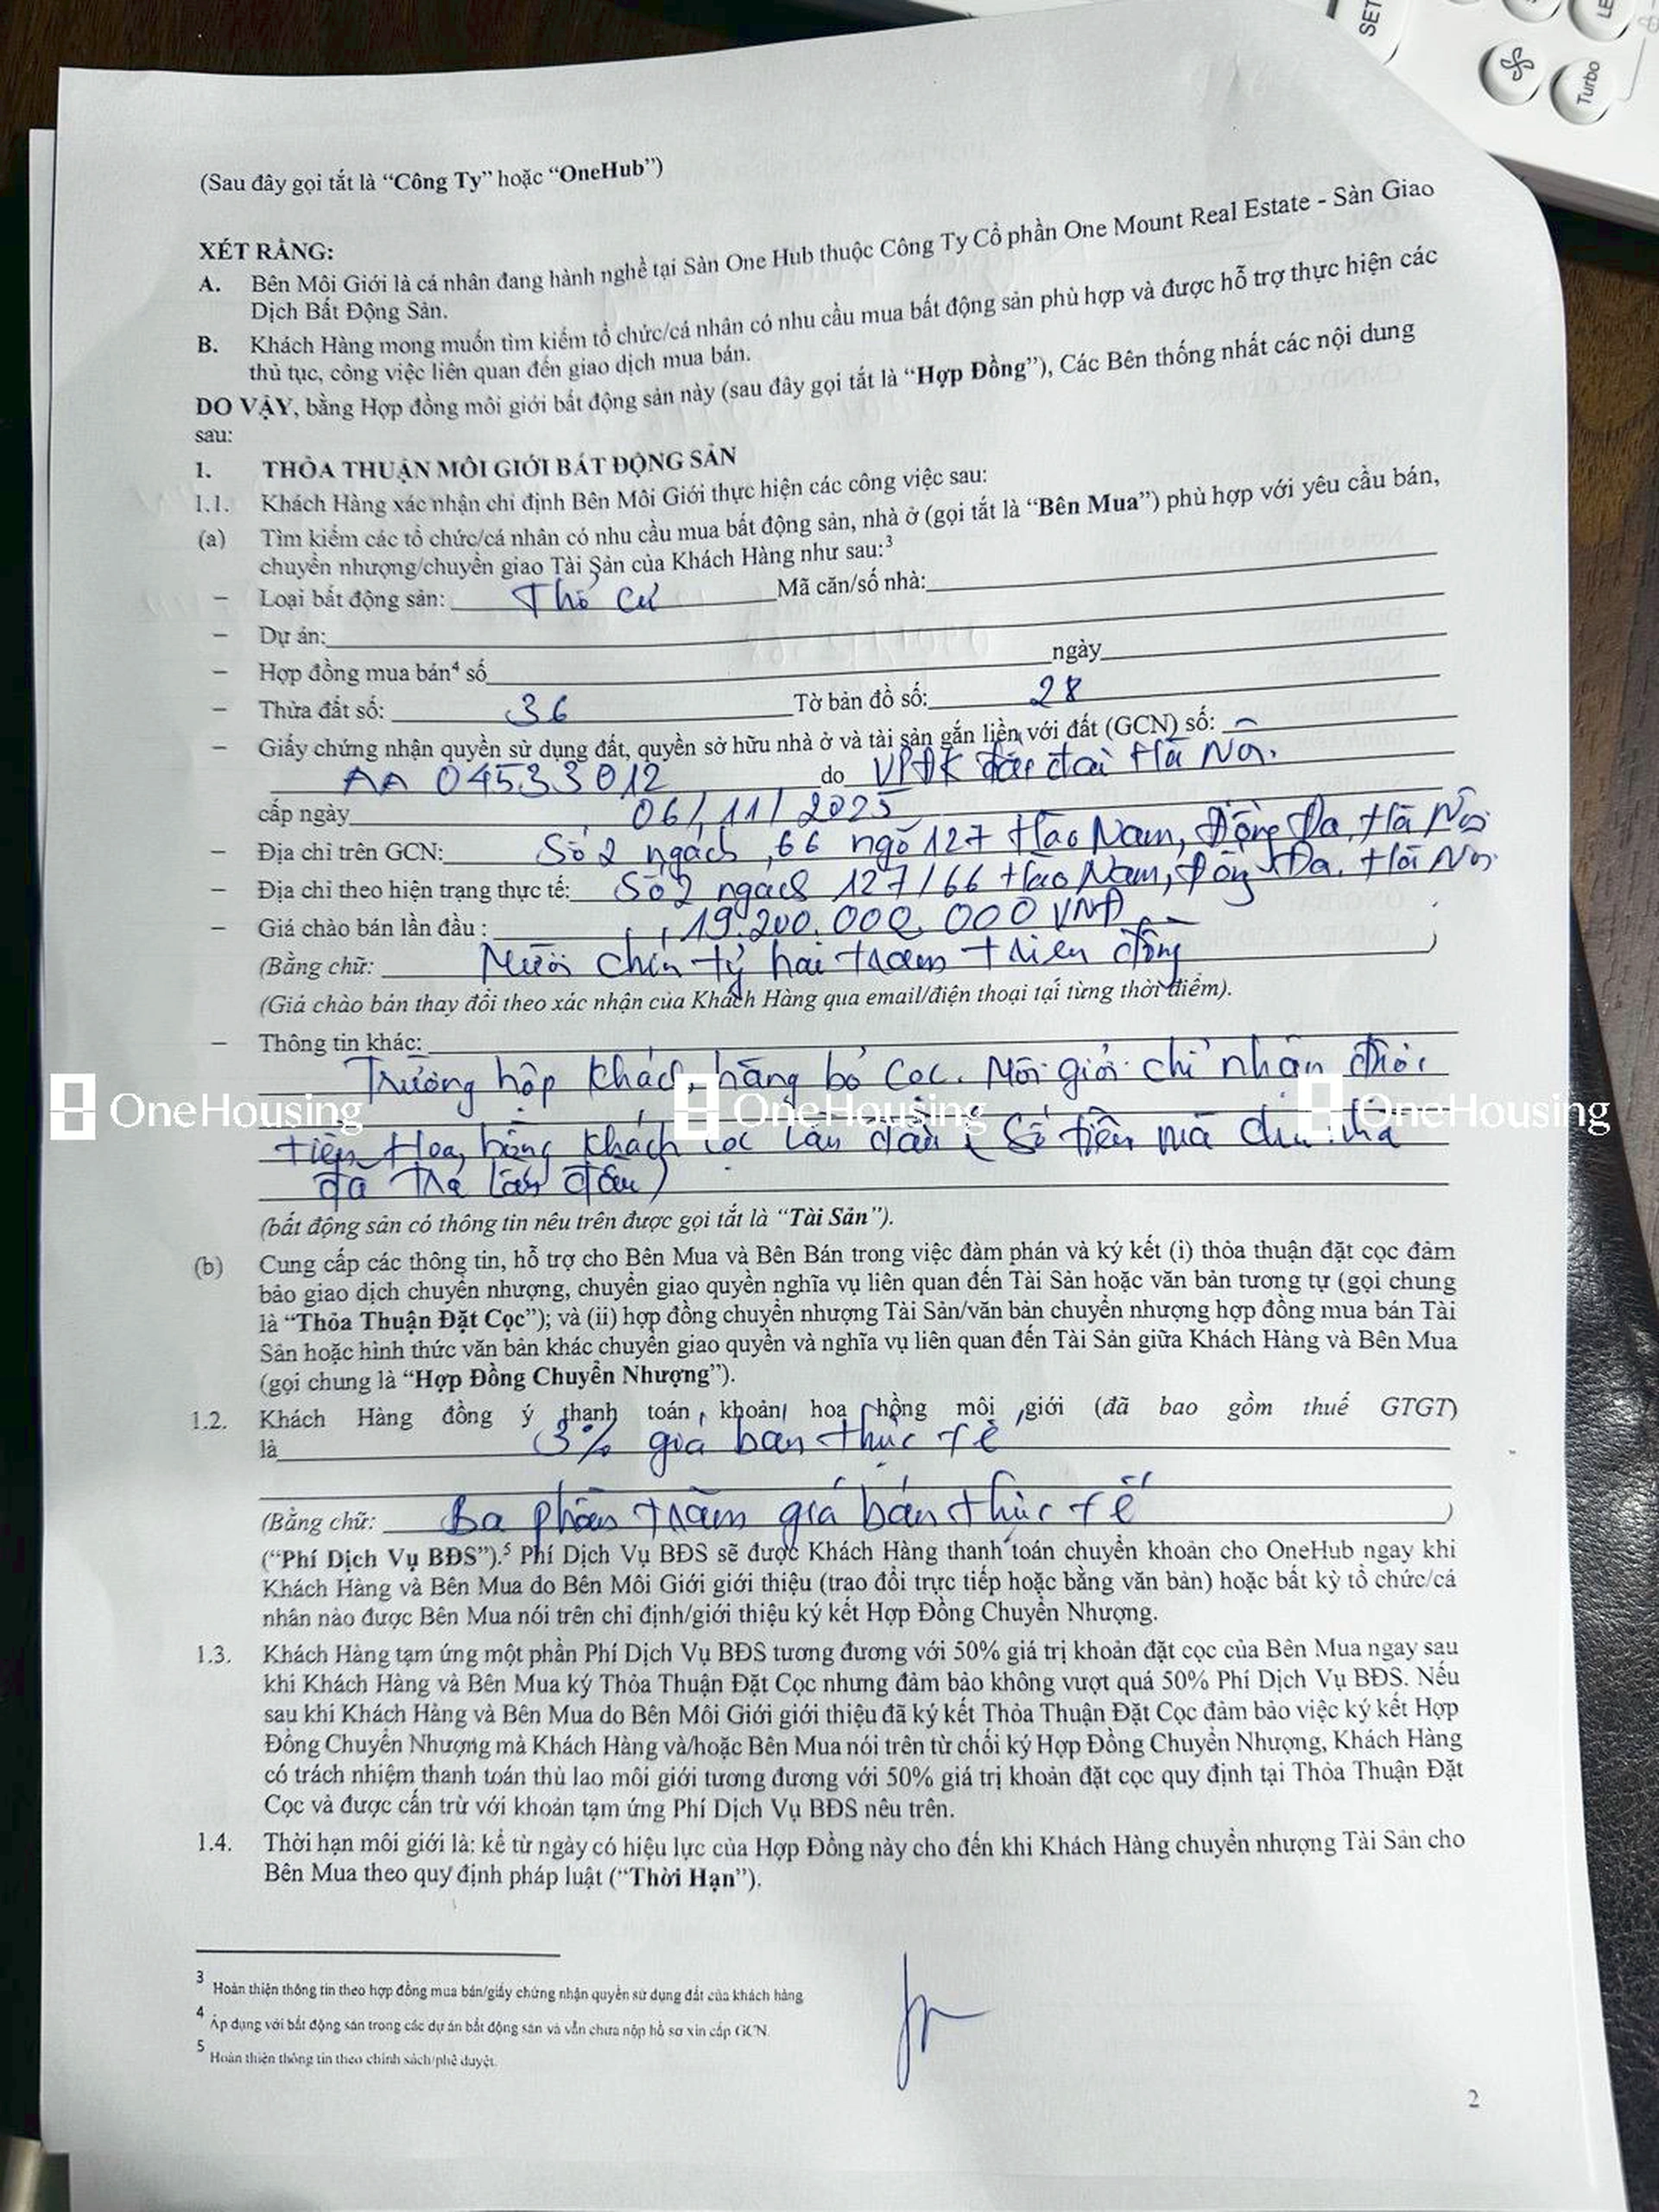 SET
LE
Turbo
(Sau đây gọi tắt là “Công Ty” hoặc “OneHub”)
XÉT RẰNG:
A. Bên Môi Giới là cá nhân đang hành nghề tại Sàn One Hub thuộc Công Ty Cổ phần One Mount Real Estate - Sàn Giao
Dịch Bất Động Sản.
B. Khách Hàng mong muốn tìm kiếm tổ chức/cá nhân có nhu cầu mua bất động sản phù hợp và được hỗ trợ thực hiện các
thủ tục, công việc liên quan đến giao dịch mua bán.
DO VẬY, bằng Hợp đồng môi giới bất động sản này (sau đây gọi tắt là “Hợp Đồng”), Các Bên thống nhất các nội dung
sau:
1. THỎA THUẬN MÔI GIỚI BẤT ĐỘNG SẢN
1.1. Khách Hàng xác nhận chỉ định Bên Môi Giới thực hiện các công việc sau:
(a) Tìm kiếm các tổ chức/cá nhân có nhu cầu mua bất động sản, nhà ở (gọi tắt là “Bên Mua”) phù hợp với yêu cầu bán,
chuyển nhượng/chuyển giao Tài Sản của Khách Hàng như sau:3
– Loại bất động sản: Thổ cư Mã căn/số nhà:
– Dự án:
– Hợp đồng mua bán4 số ngày
– Thửa đất số: 36 Tờ bản đồ số: 28
– Giấy chứng nhận quyền sử dụng đất, quyền sở hữu nhà ở và tài sản gắn liền với đất (GCN) số:
AA 04533012 do VPĐK đất đai Hà Nội.
cấp ngày 06/11/2025
– Địa chỉ trên GCN: Số 2 ngách 66 ngõ 127 Hào Nam, Đống Đa, Hà Nội
– Địa chỉ theo hiện trạng thực tế: Số 2 ngách 127/66 Hào Nam, Đống Đa, Hà Nội
– Giá chào bán lần đầu : 19.200.000.000 VNĐ
(Bằng chữ: Mười chín tỷ hai trăm triệu đồng )
(Giá chào bán thay đổi theo xác nhận của Khách Hàng qua email/điện thoại tại từng thời điểm).
– Thông tin khác:
Trường hợp khách hàng bỏ cọc. Môi giới chỉ nhận được
tiền Hoa hồng khách cọc lần đầu ( Số tiền mà chủ nhà
đã trả lần đầu)
OneHousing OneHousing OneHousing
(bất động sản có thông tin nêu trên được gọi tắt là “Tài Sản”).
(b) Cung cấp các thông tin, hỗ trợ cho Bên Mua và Bên Bán trong việc đàm phán và ký kết (i) thỏa thuận đặt cọc đảm
bảo giao dịch chuyển nhượng, chuyển giao quyền nghĩa vụ liên quan đến Tài Sản hoặc văn bản tương tự (gọi chung
là “Thỏa Thuận Đặt Cọc”); và (ii) hợp đồng chuyển nhượng Tài Sản/văn bản chuyển nhượng hợp đồng mua bán Tài
Sản hoặc hình thức văn bản khác chuyển giao quyền và nghĩa vụ liên quan đến Tài Sản giữa Khách Hàng và Bên Mua
(gọi chung là “Hợp Đồng Chuyển Nhượng”).
1.2. Khách Hàng đồng ý thanh toán khoản hoa hồng môi giới (đã bao gồm thuế GTGT)
là 3% giá bán thực tế
(Bằng chữ: Ba phần trăm giá bán thực tế )
(“Phí Dịch Vụ BĐS”).5 Phí Dịch Vụ BĐS sẽ được Khách Hàng thanh toán chuyển khoản cho OneHub ngay khi
Khách Hàng và Bên Mua do Bên Môi Giới giới thiệu (trao đổi trực tiếp hoặc bằng văn bản) hoặc bất kỳ tổ chức/cá
nhân nào được Bên Mua nói trên chỉ định/giới thiệu ký kết Hợp Đồng Chuyển Nhượng.
1.3. Khách Hàng tạm ứng một phần Phí Dịch Vụ BĐS tương đương với 50% giá trị khoản đặt cọc của Bên Mua ngay sau
khi Khách Hàng và Bên Mua ký Thỏa Thuận Đặt Cọc nhưng đảm bảo không vượt quá 50% Phí Dịch Vụ BĐS. Nếu
sau khi Khách Hàng và Bên Mua do Bên Môi Giới giới thiệu đã ký kết Thỏa Thuận Đặt Cọc đảm bảo việc ký kết Hợp
Đồng Chuyển Nhượng mà Khách Hàng và/hoặc Bên Mua nói trên từ chối ký Hợp Đồng Chuyển Nhượng, Khách Hàng
có trách nhiệm thanh toán thù lao môi giới tương đương với 50% giá trị khoản đặt cọc quy định tại Thỏa Thuận Đặt
Cọc và được cấn trừ với khoản tạm ứng Phí Dịch Vụ BĐS nêu trên.
1.4. Thời hạn môi giới là: kể từ ngày có hiệu lực của Hợp Đồng này cho đến khi Khách Hàng chuyển nhượng Tài Sản cho
Bên Mua theo quy định pháp luật (“Thời Hạn”).
3 Hoàn thiện thông tin theo hợp đồng mua bán/giấy chứng nhận quyền sử dụng đất của khách hàng
4 Áp dụng với bất động sản trong các dự án bất động sản và vẫn chưa nộp hồ sơ xin cấp GCN.
5 Hoàn thiện thông tin theo chính sách/phê duyệt.
2